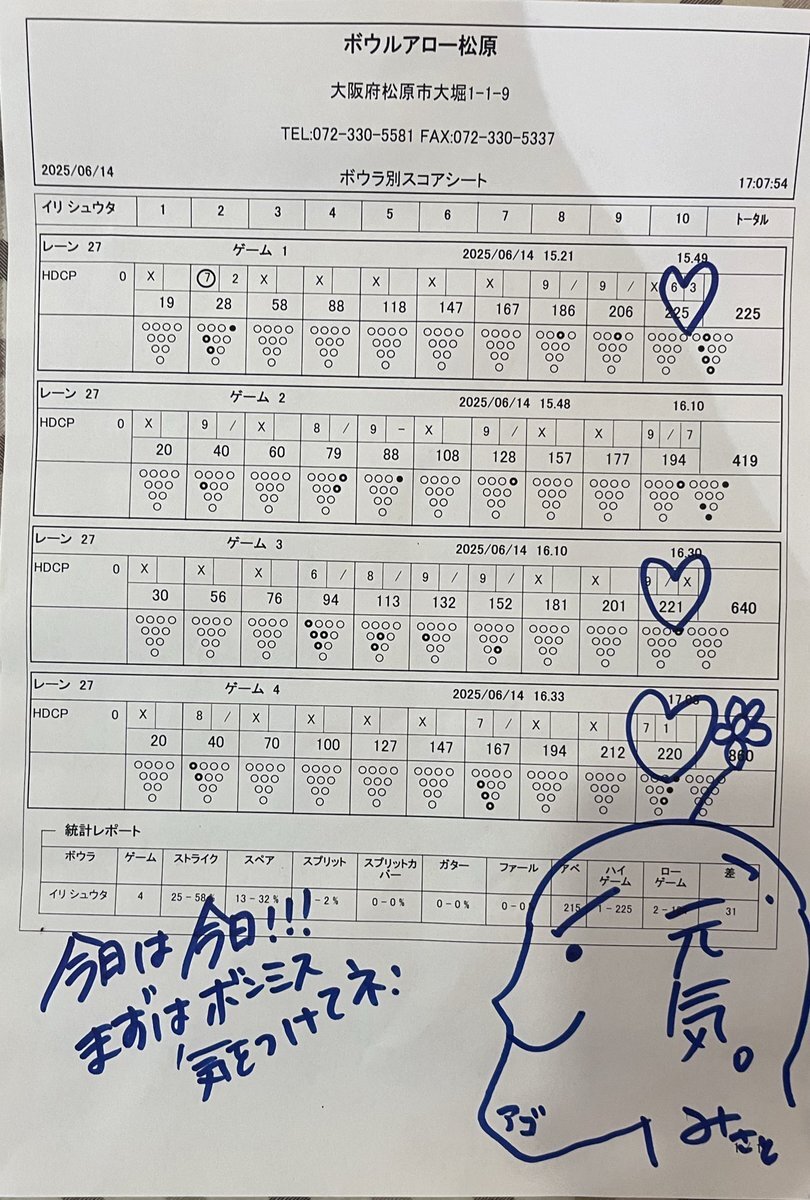 ボウルアロー松原
大阪府松原市大堀1-1-9
TEL:072-330-5581 FAX:072-330-5337
2025/06/14 ボウラ別スコアシート 17:07:54
イリ シュウタ 1 2 3 4 5 6 7 8 9 10 トータル
レーン 27 ゲーム 1 2025/06/14 15.21 15.49
HDCP 0 X 7 2 X X X X X 9 / 9 / X 6 3
19 28 58 88 118 147 167 186 206 225 225
レーン 27 ゲーム 2 2025/06/14 15.48 16.10
HDCP 0 X 9 / X 8 / 9 - X 9 / X X 9 / 7
20 40 60 79 88 108 128 157 177 194 419
レーン 27 ゲーム 3 2025/06/14 16.10 16.30
HDCP 0 X X X 6 / 8 / 9 / 9 / X X 9 / X
30 56 76 94 113 132 152 181 201 221 640
レーン 27 ゲーム 4 2025/06/14 16.33
HDCP 0 X 8 / X X X X 7 / X X 7 1
20 40 70 100 127 147 167 194 212 220 860
統計レポート
ボウラ ゲーム ストライク スペア スプリット スプリットカバー ガター ファール アベ ハイゲーム ローゲーム 差
イリ シュウタ 4 25-58% 13-32% -2% 0-0% 0-0% 0-0 215 1-225 31
今日は今日!!!
まずはボンミス
気をつけてネ
元気。
アゴ
みさと